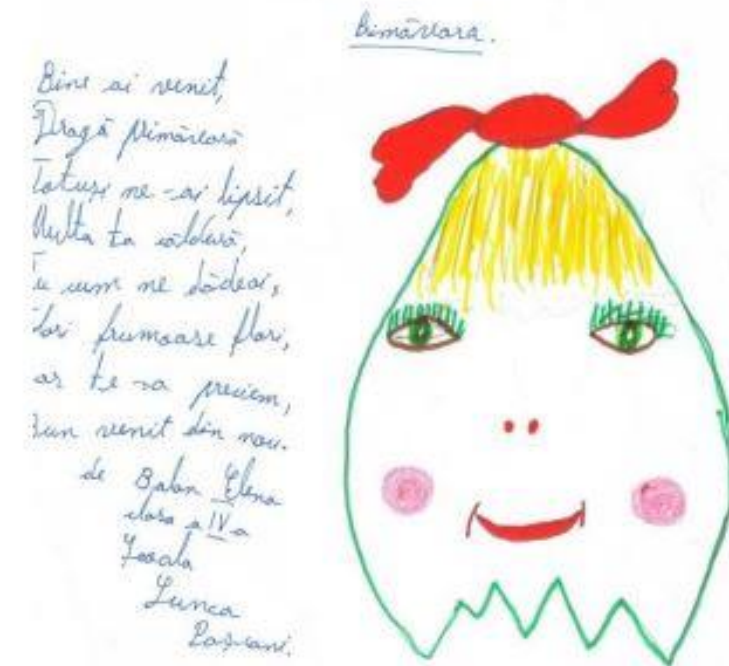 Primăvara.
Bine ai venit,
Dragă primăvară
Totuși ne-ai lipsit,
Multa ta căldură,
cum ne dădeai,
frumoase flori,
te-a
venit din nou.
de Balan Elena
clasa a IV a
Școala
Lunca
Pașcani.